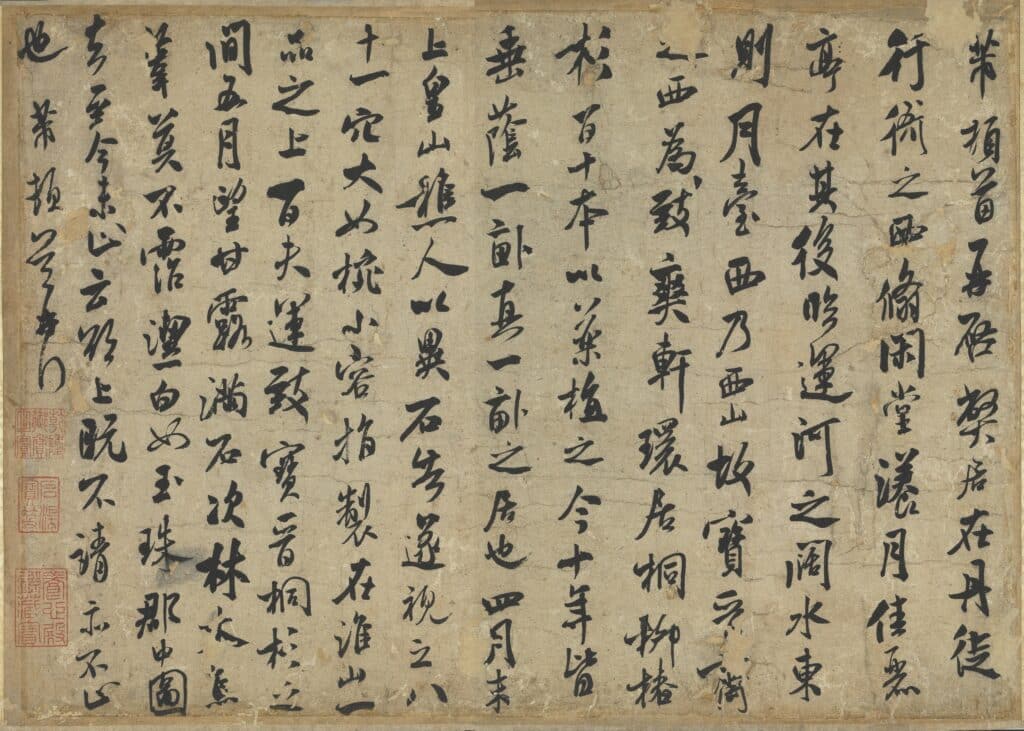 芾頓首再啟弊居在丹徒
行衙之西翛閑堂漾月佳麗
亭在其後臨運河之闊水東
則月臺西乃西山故寶晉齋
之西為致爽軒環居桐柳椿
杉百十本以藥植之今十年皆
垂蔭一畝真一畝之居也四月末
上皇山樵人以異石告遂視之八
十一穴大如椀小容指製在淮山一
品之上百夫運致寶晉桐杉之
間五月望甘露滿石次林木焦
葦莫不霑潔白如玉珠郡中圖
去至今未止云欲上既不請亦不止
也 芾頓首